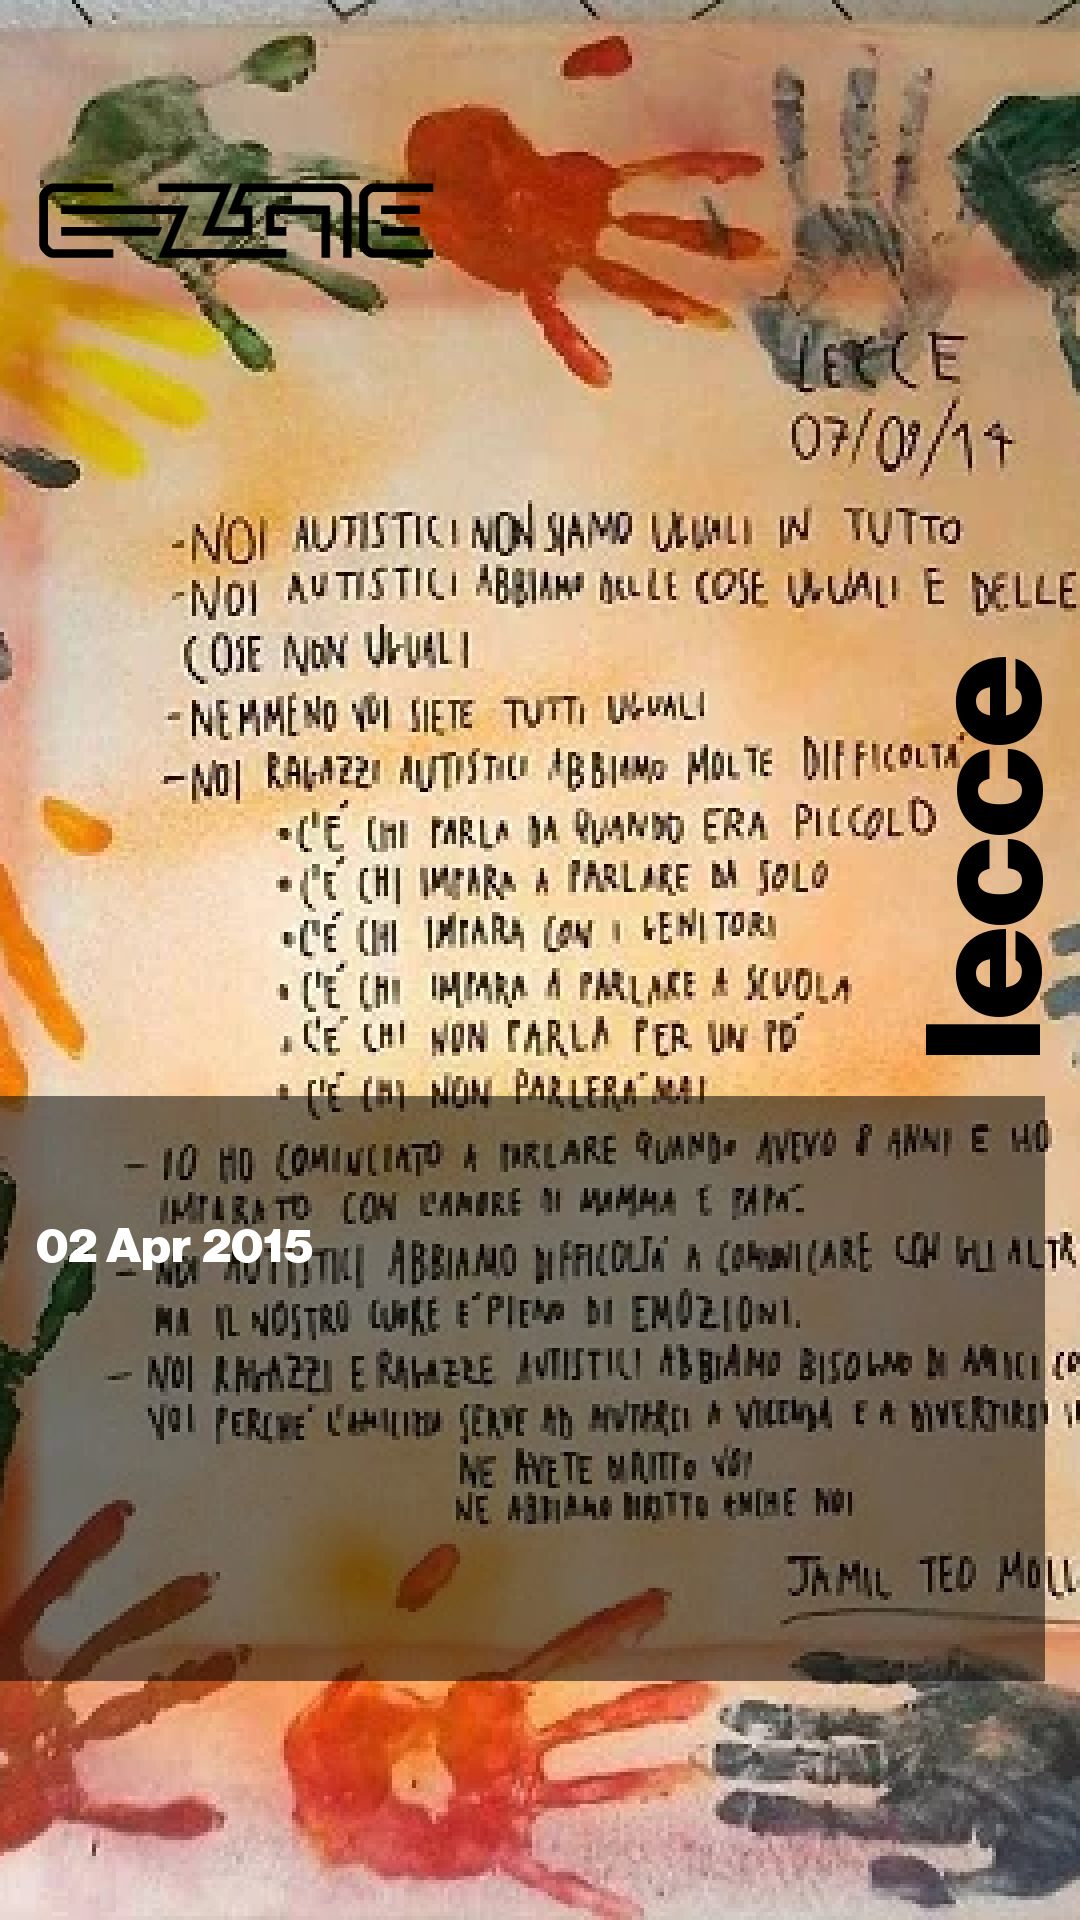 E-ZINE
LECCE
07/08/14
-NOI AUTISTICI NON SIAMO UGUALI IN TUTTO
-NOI AUTISTICI ABBIAMO DELLE COSE UGUALI E DELLE
COSE NON UGUALI
-NEMMENO VOI SIETE TUTTI UGUALI
-NOI RAGAZZI AUTISTICI ABBIAMO MOLTE DIFFICOLTA'
•C'É CHI PARLA DA QUANDO ERA PICCOLO
•C'É CHI IMPARA A PARLARE DA SOLO
•C'É CHI IMPARA CON I GENITORI
•C'É CHI IMPARA A PARLARE A SCUOLA
•C'É CHI NON PARLA PER UN PO'
•C'É CHI NON PARLERA' MAI
lecce
- IO HO COMINCIATO A PARLARE QUANDO AVEVO 8 ANNI E HO
IMPARATO CON L'AMORE DI MAMMA E PAPA'.
02 Apr 2015
- NOI AUTISTICI ABBIAMO DIFFICOLTA' A COMUNICARE CON GLI ALTR
MA IL NOSTRO CUORE E' PIENO DI EMOZIONI.
- NOI RAGAZZI E RAGAZZE AUTISTICI ABBIAMO BISOGNO DI AMICI CO
VOI PERCHE' L'AMICIZIA SERVE AD AIUTARCI A VICENDA E A DIVERTIRSI
NE AVETE DIRITTO VOI
NE ABBIAMO DIRITTO ANCHE NOI
JAMIL TEO MOLL